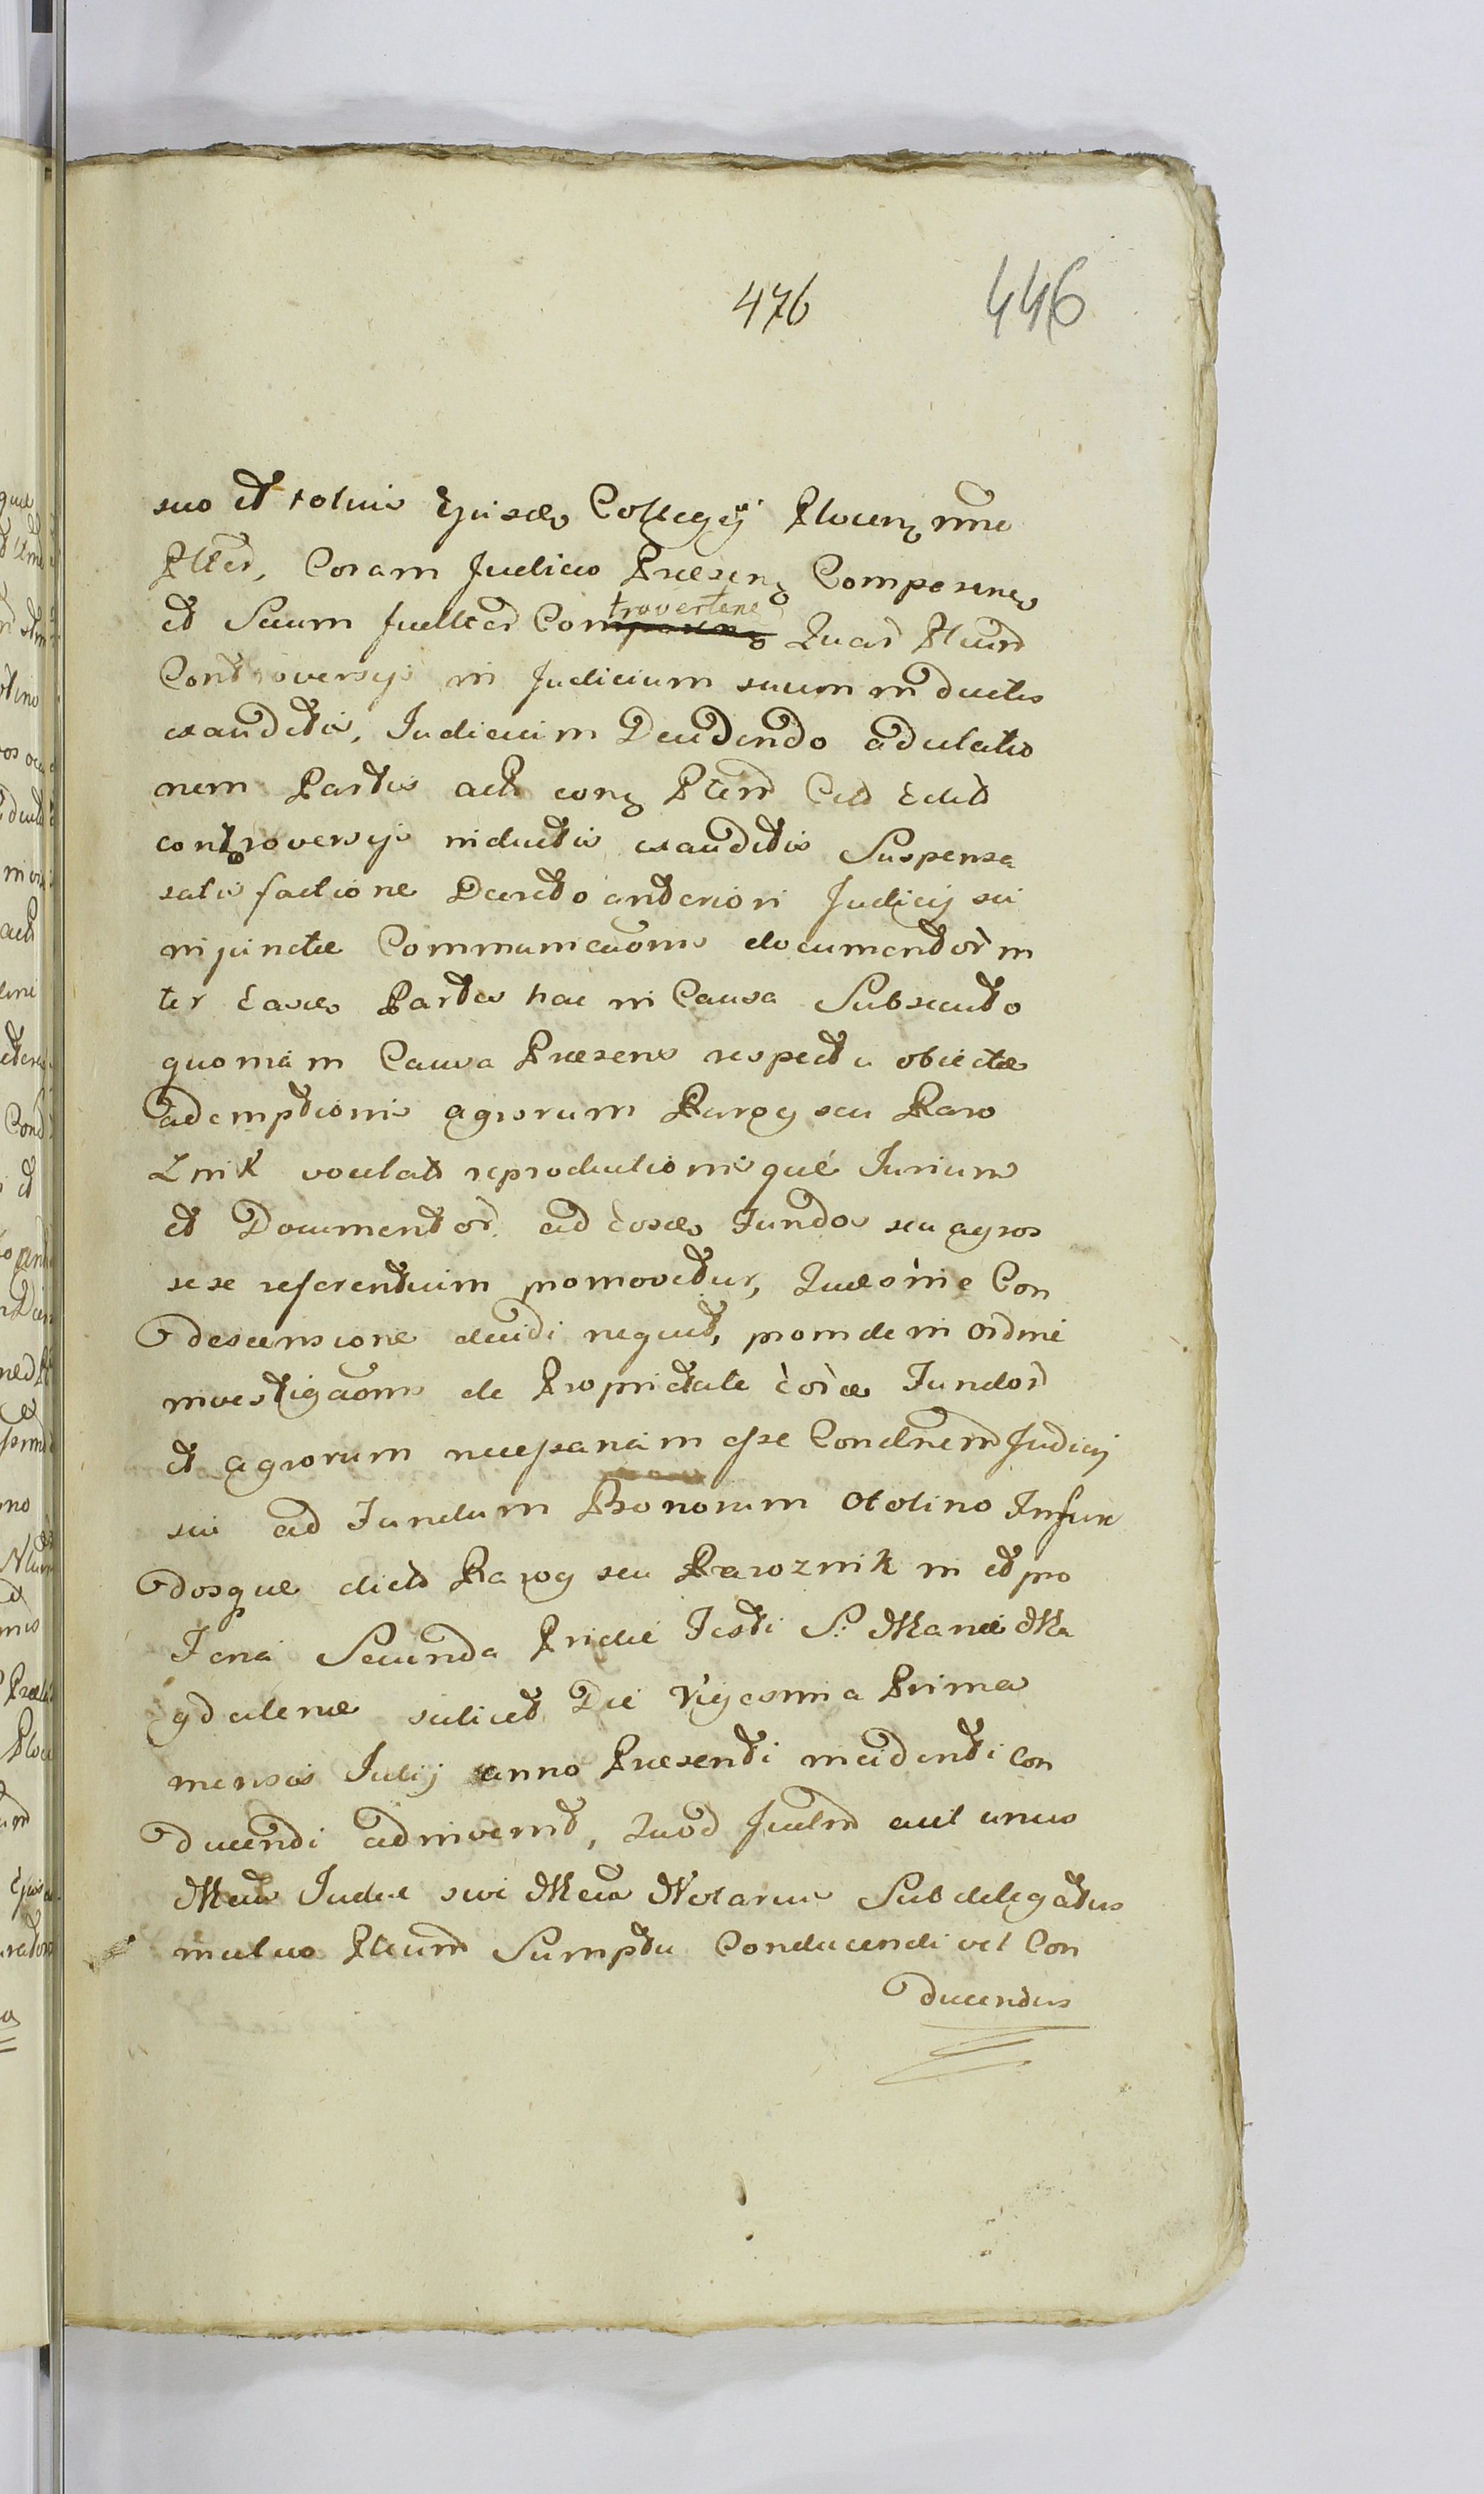 476 446
suo et totius Ejusdē Collegij Plocenz nrōe
Ptted, Coram Judicio Præsenz Comparenē
et Suum Juelltēr Con~~parenz~~ trovertene Quar Ptium
Controversijs in Judicium suum inductis
exauditis, Judicium Decidendo adulatio
nem Partis actē conz Ptem Citō Edit
controversijs inductis exauditis Suspensa
satisfactione Decreto anteriori Judicij sui
injunctæ Communicaōnis documentor in
ter Easdē Partes hac in Causa Subsecuto
quoniam Causa Præsens respectu objectæ
ademptionis agrorum Parog seu Paro
Znik vocitatō reproductionisque Jurium
et Documentor. ad Eosdē Fundos seu agros
sese referentium promovetur, Quæ sine Con
descensione decidi nequit, proinde in ordine
investigaōnis de Proprietate Eorde Fundor
et agrorum necessariam esse Condnem Judicij
sui ad Fundum Bonorum Ototino Infun
dosque dictō Parog seu Paroznik in et pro
Feria Secunda Pridie Festi S. Mariæ Ma
gdalenæ scilicet Die Vigesima Prima
mensis Julij anno Præsenti incidenti con
ducendi adinvenit, Quod Judm aut unus
Meus Judex sive Meus Notarius Subdelegatus
mutuo Ptium Sumptu Conducendi vel Con
ducendus